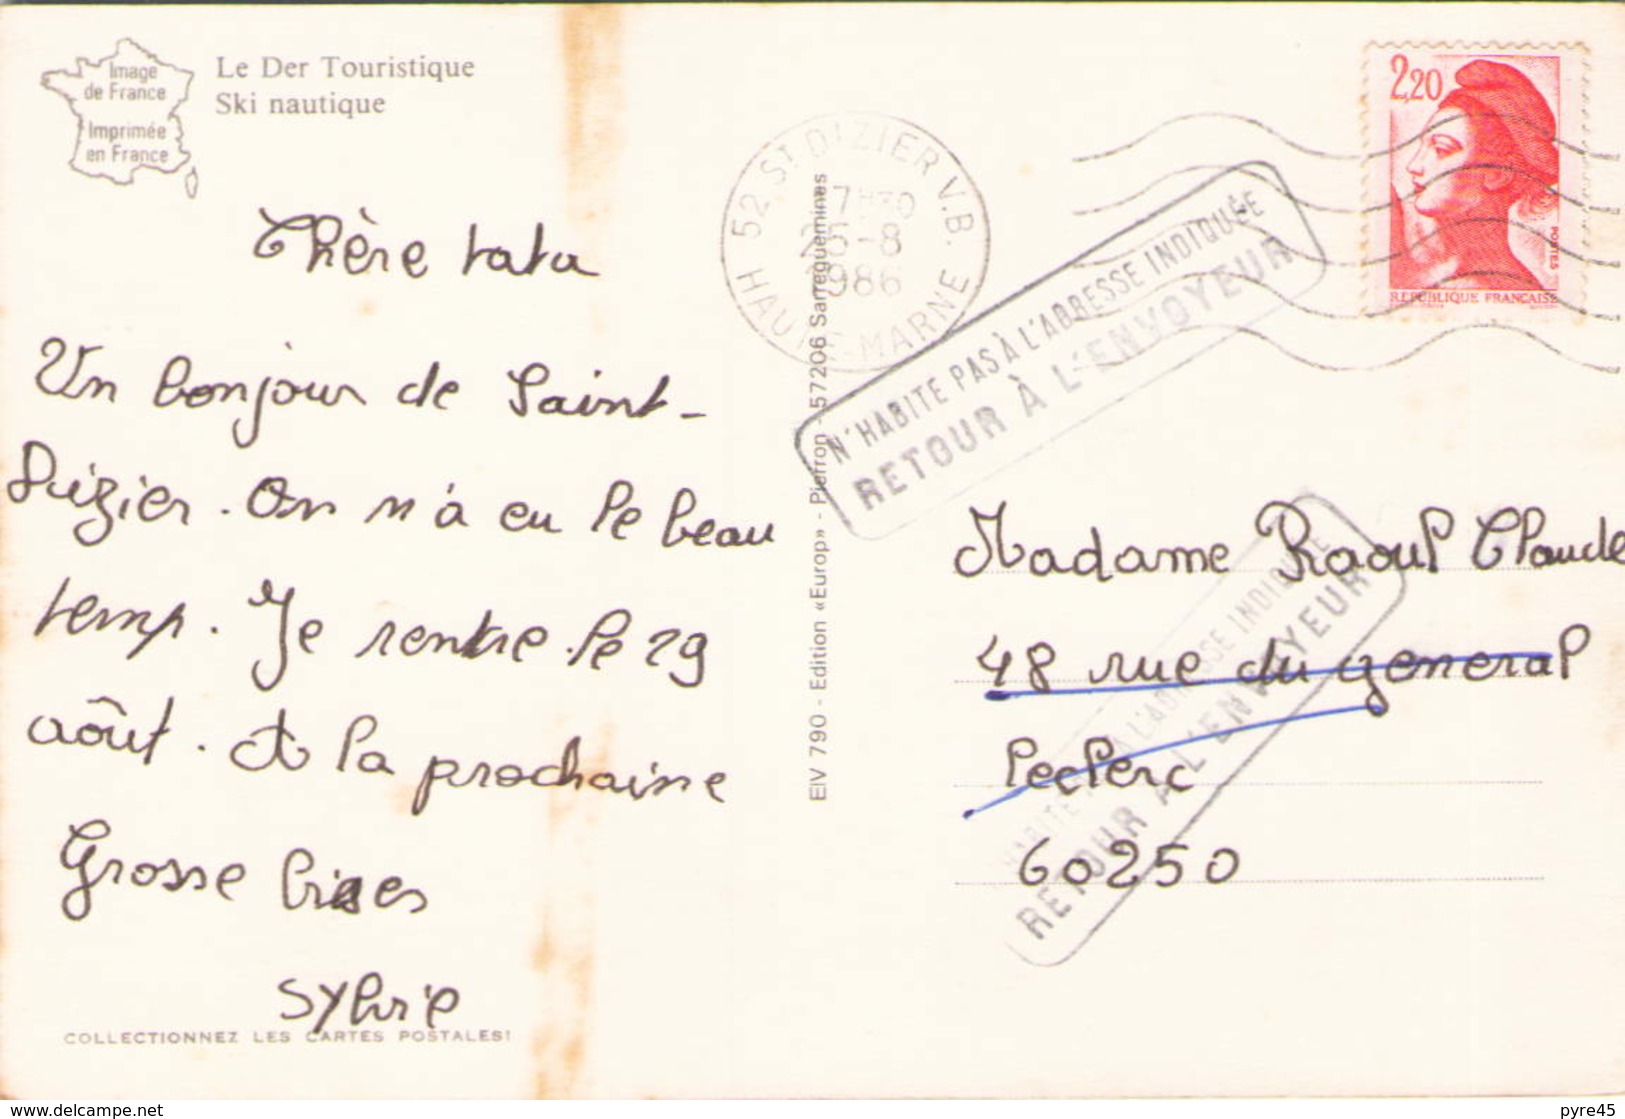 Image
de France
Imprimée
en France
Le Der Touristique
Ski nautique
Chère tata
Un bonjour de Saint-
Dizier. On n'a eu le beau
temp. Je rentre le 29
août. A la prochaine
Grosse bises
Sylvie
COLLECTIONNEZ LES CARTES POSTALES!
EIV 790 - Edition «Europ» - Pierron - 57206 Sarreguemines
52 ST DIZIER V.B.
1986
HAUTE-MARNE
N'HABITE PAS À L'ADRESSE INDIQUÉE
RETOUR À L'ENVOYEUR
2,20
POSTES
REPUBLIQUE FRANCAISE
Madame Raoul Claude
48 rue du general
leclerc
60250
N'HABITE PAS À L'ADRESSE INDIQUÉE
RETOUR À L'ENVOYEUR
www.delcampe.net
pyre45